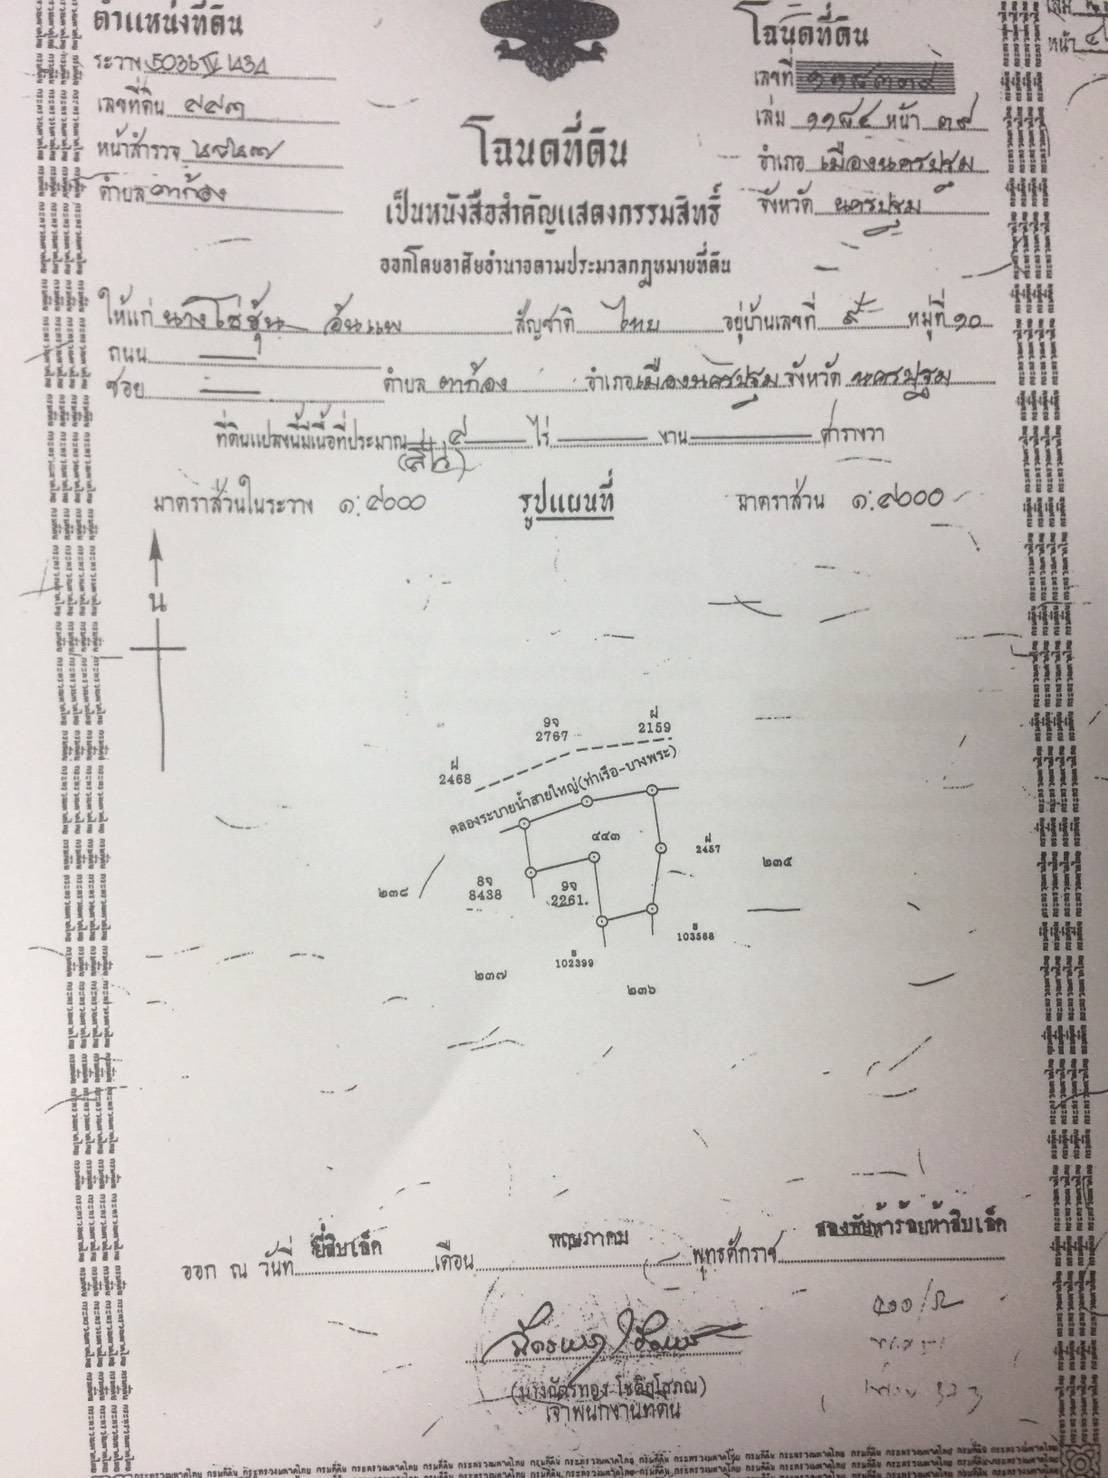 ตำแหน่งที่ดิน
โฉนดที่ดิน
เล่ม
หน้า
ระวาง 5036 IV 1434
เลขที่
เลขที่ดิน ๔๔๓
เล่ม ๑๑๘๔ หน้า ๓๙
หน้าสำรวจ
โฉนดที่ดิน
อำเภอ เมืองนครปฐม
ตำบล ตาก้อง
เป็นหนังสือสำคัญแสดงกรรมสิทธิ์
จังหวัด นครปฐม
ออกโดยอาศัยอำนาจตามประมวลกฎหมายที่ดิน
ให้แก่ นางโซ่ฮุ้น อ้นแพ สัญชาติ ไทย อยู่บ้านเลขที่ ๙ หมู่ที่ ๑๐
ถนน —
ซอย — ตำบล ตาก้อง อำเภอ เมืองนครปฐม จังหวัด นครปฐม
ที่ดินแปลงนี้มีเนื้อที่ประมาณ ๔ ไร่ — งาน — ตารางวา
(สี่)
มาตราส่วนในระวาง ๑:๔๐๐๐ รูปแผนที่ มาตราส่วน ๑:๔๐๐๐
น
ฝ
2159
9จ
2767
ฝ
2468
คลองระบายน้ำสายใหญ่(ท่าเรือ-บางพระ)
๔๔๓
ฝ
2457
๒๓๕
๒๓๘
8จ
8438
9จ
2261
103568
102399
๒๓๗
๒๓๖
ออก ณ วันที่ ยี่สิบเอ็ด เดือน พฤษภาคม พุทธศักราช สองพันห้าร้อยห้าสิบเอ็ด
(นางฉัตรทอง โชติกุโสภณ)
เจ้าพนักงานที่ดิน
กรมที่ดิน กระทรวงมหาดไทย